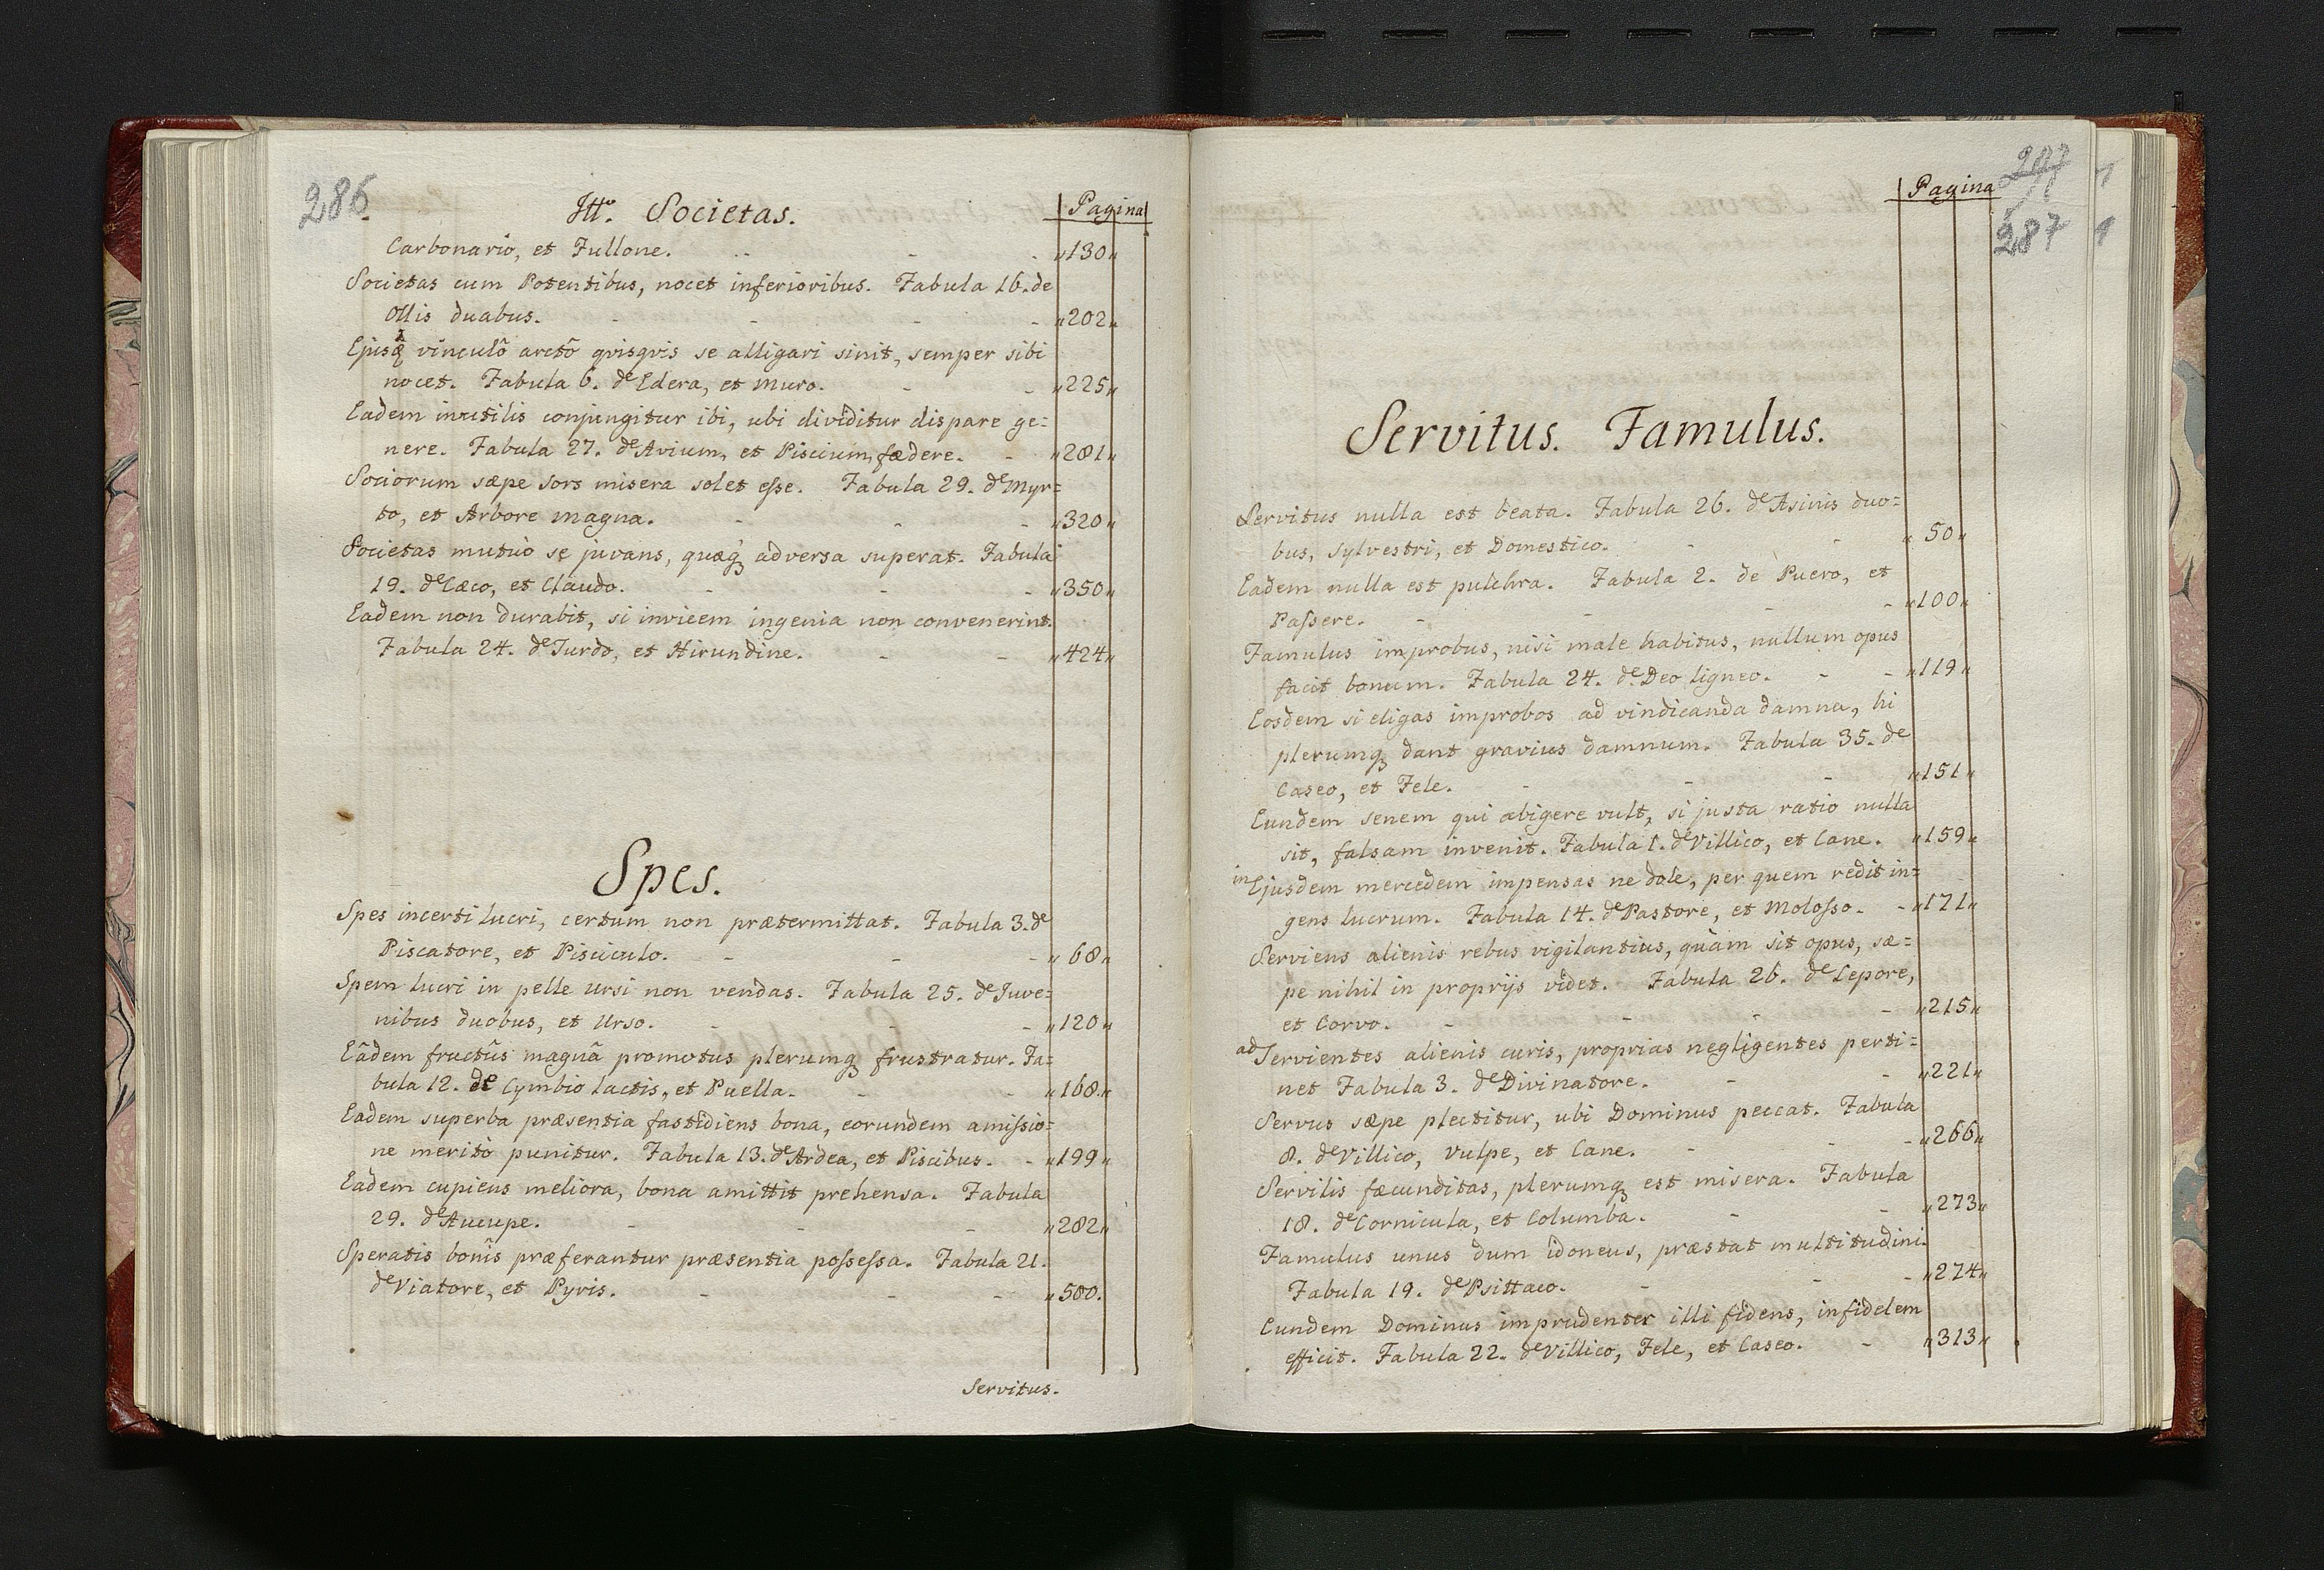 286
Ittō. Societas.
Pagina
Carbonario, et Fullone. - - - „130„
Societas cum Potentibus, nocet inferioribus. Fabula 16. de
Ollis duabus. - - - - „202„
Ejusq̃ vinculô arctô qvisqvis se alligari sinit, semper sibi
nocet. Fabula 6. de Edera, et Muro. - - „225„
Eadem inutilis conjungitur ibi, ubi dividitur dispare ge=
nere. Fabula 27. de Avium, et Piscium, fædere. - „281„
Sociorum sæpe sors misera solet esse. Fabula 29. de Myr=
to, et Arbore magna. - - - „320„
Societas mutuò se juvans, quæq; adversa superat. Fabula
19. de Cæco, et Claudo. - - - „350„
Eadem non durabit, si invicem ingenia non convenerint.
Fabula 24. de Turdo, et Hirundine. - - „424„
Spes.
Spes incerti lucri, certum non prætermittat. Fabula 3. de
Piscatore, et Pisciculo. - - - „68„
Spem lucri in pelle ursi non vendas. Fabula 25. de Juve=
nibus duobus, et Urso. - - - „120„
Eâdem fructûs magnâ promotus plerumq; frustratur. Fa=
bula 12. de Cymbio lactis, et Puella. - - „168„
Eadem superba præsentia fastidiens bona, eorundem amissio=
ne meritò punitur. Fabula 13. de Ardea, et Piscibus. - „199„
Eadem cupiens meliora, bona amittit prehensa. Fabula
29. de Aucupe. - - - „282„
Speratis bonis præferantur præsentia possessa. Fabula 21.
de Viatore, et Pyris. - - - „580.
Servitus.
287
Pagina
287
Servitus. Famulus.
Servitus nulla est beata. Fabula 26. de Asinis duo=
bus, Sylvestri, et Domestico. - - „50„
Eadem nulla est pulchra. Fabula 2. de Puero, et
Passere. - - - - „100„
Famulus improbus, nisi male habitus, nullum opus
facit bonum. Fabula 24. de Deo ligneo. - - „119„
Eosdem si eligas improbos ad vindicanda damna, hi
plerumq; dant gravius damnum. Fabula 35. de
Caseo, et Fele. - - - „151„
Eundem senem qui abigere vult, si justa ratio nulla
sit, falsam invenit. Fabula 1. de Villico, et Cane. „159„
in Ejusdem mercedem impensas ne dole, per quem redit in=
gens lucrum. Fabula 14. de Pastore, et Molosso. - „171„
Serviens alienis rebus vigilantius, quàm sit opus, sæ=
pe nihil in proprijs videt. Fabula 26. de Lepore,
et Corvo. - - - - „215„
ad Servientes alienis curis, proprias negligentes perti=
net Fabula 3. de Divinatore. - - „221„
Servus sæpe plectitur, ubi Dominus peccat. Fabula
8. de Villico, Vulpe, et Cane. - - - „266„
Servilis fæcunditas, plerumq; est misera. Fabula
18. de Cornicula, et Columba. - - „273„
Famulus unus dum idoneus, præstat multitudini.
Fabula 19. de Psittaco. - - - „274„
Eundem Dominus imprudenter illi fidens, infidelem
efficit. Fabula 22. de Villico, Fele, et Caseo. - „313„